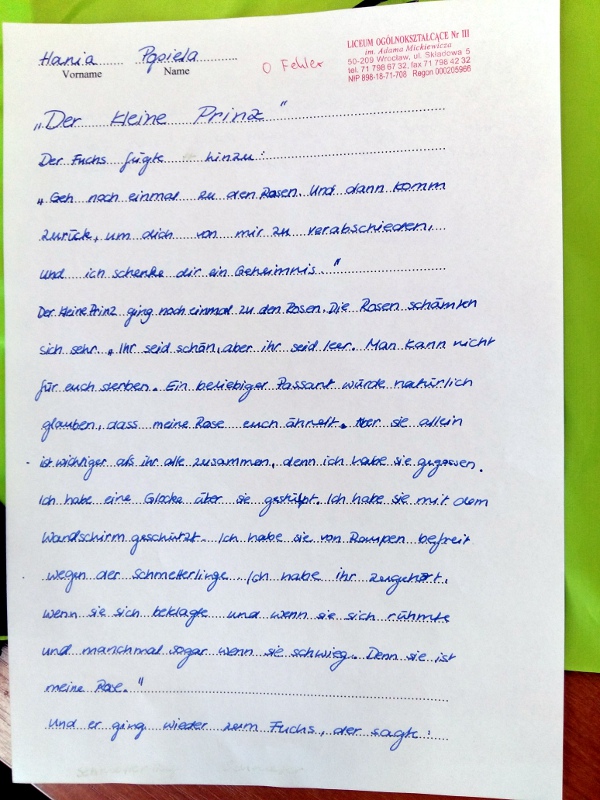 Hania Pgoiela
Vorname Name
0 Fehler
LICEUM OGÓLNOKSZTAŁCĄCE Nr III
im. Adama Mickiewicza
50-209 Wrocław, ul. Składowa 5
tel. 71 798 67 32, fax 71 796 42 32
NIP 898-18-71-708 Regon 000205966
„Der kleine Prinz"
Der Fuchs fügte hinzu:
„Geh noch einmal zu den Rosen. Und dann komm
zurück, um dich von mir zu verabschieden,
und ich schenke dir ein Geheimnis."
Der kleine Prinz ging noch einmal zu den Rosen. Die Rosen schämten
sich sehr. „Ihr seid schön, aber ihr seid leer. Man kann nicht
für euch sterben. Ein beliebiger Passant würde natürlich
glauben, dass meine Rose euch ähnelt. Aber sie allein
ist wichtiger als ihr alle zusammen, denn ich habe sie gegossen.
Ich habe eine Glocke über sie gestülpt. Ich habe sie mit dem
Wandschirm geschützt. Ich habe sie von Raupen befreit
wegen der Schmetterlinge. Ich habe ihr zugehört,
wenn sie sich beklagte und wenn sie sich rühmte
und manchmal sogar wenn sie schwieg. Denn sie ist
meine Rose."
Und er ging wieder zum Fuchs, der sagte: